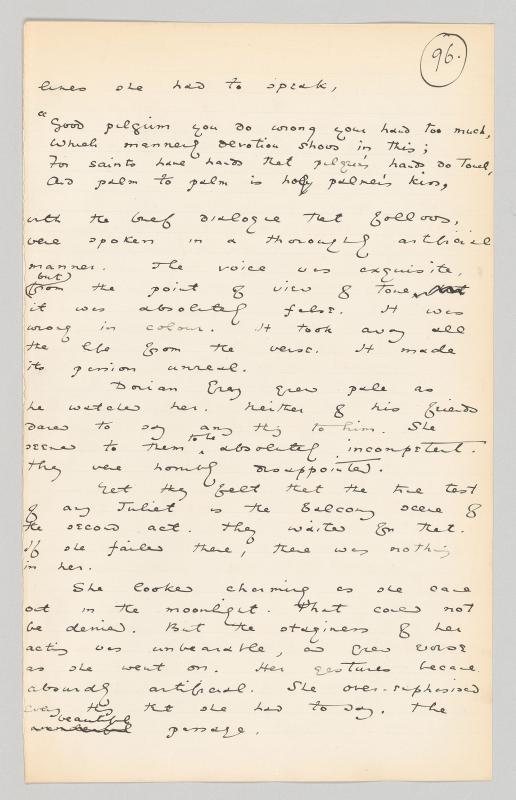 96.
lines she had to speak,
"Good pilgrim you do wrong your hand too much,
Which mannerly devotion shows in this;
For saints have hands that pilgrim's hands do touch,
And palm to palm is holy palmer's kiss,
with the brief dialogue that follows,
were spoken in a thoroughly artificial
manner. The voice was exquisite,
but
from the point of view of tone
it was absolutely false. It was
wrong in colour. It took away all
the life from the verse. It made
its passion unreal.
Dorian Gray grew pale as
he watched her. Neither of his friends
dared to say any thing to him. She
to be
seemed to them absolutely incompetent.
They were horribly disappointed.
Yet they felt that the true test
of any Juliet is the Balcony scene of
the second act. They waited for that.
If she failed there, there was nothing
in her.
She looked charming as she came
out in the moonlight. That could not
be denied. But the staginess of her
acting was unbearable, and grew worse
as she went on. Her gestures became
absurdly artificial. She over-emphasised
every thing that she had to say. The
beautiful
wonderful passage.